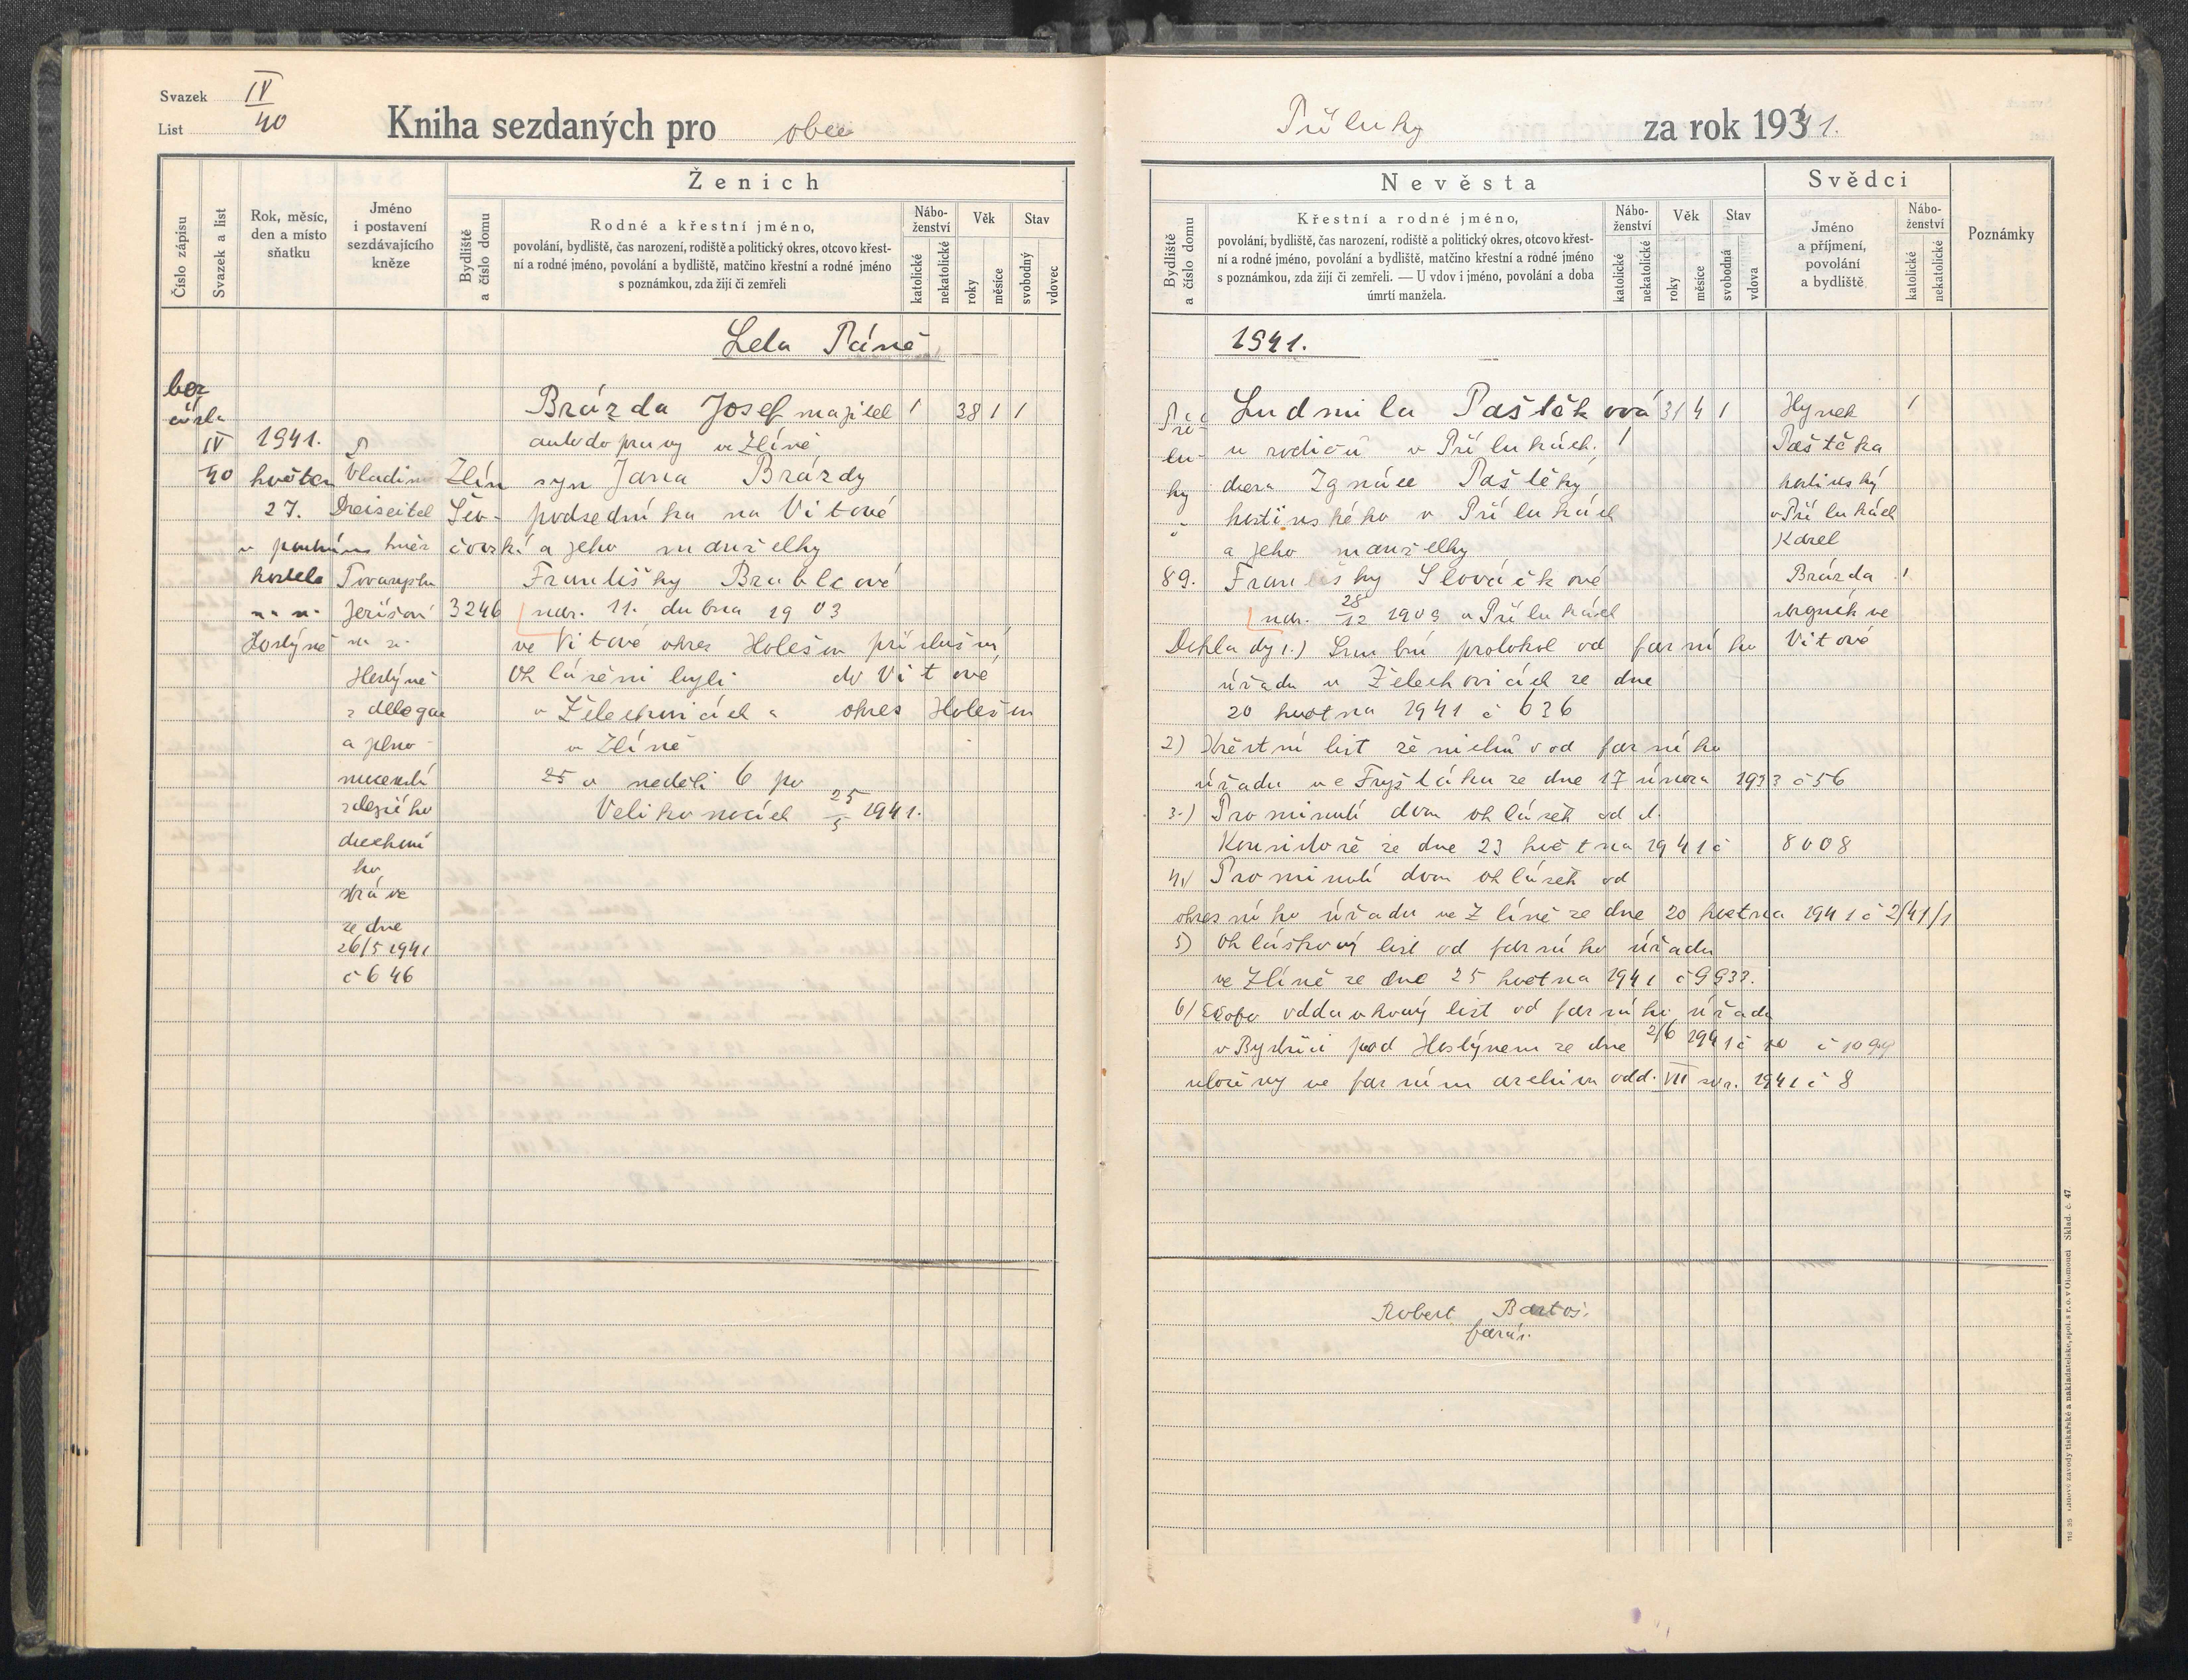 Svazek IV
List 40
Kniha sezdaných pro obec
Číslo zápisu
Svazek a list
Rok, měsíc,
den a místo
sňatku
Jméno
i postavení
sezdávajícího
kněze
Ženich
Bydliště
a číslo domu
Rodné a křestní jméno,
povolání, bydliště, čas narození, rodiště a politický okres, otcovo křest-
ní a rodné jméno, povolání a bydliště, matčino křestní a rodné jméno
s poznámkou, zda žijí či zemřeli
Nábo-
ženství
katolické
nekatolické
Věk
roky
měsíce
Stav
svobodný
vdovec
Léta Páně
bez
čísla
IV
40
1941.
květen
27.
kostela
Hostýně
P
Vladimír
Dreiseitel
na sv.
Hostýně
z delegace
a plno-
mocenství
zdejšího
duchovní
ho
správce
ze dne
26/5 1941
č 646
Zlín
Lev-
3246
Brázda Josef majitel 1 38 1 1
autodopravy ve Zlíně
syn Jana Brázdy
podsedníka na Vítové
a jeho manželky
Františky Brablcové
nar. 11. dubna 1903
ve Vítové okres Holešov příslušný
Ohlášeni byli do Vítové
v Želechovicích a okres Holešov
v Zlíně
25 v neděli 6 po
Velikonocích 25/5 1941.
Příluky za rok 1941.
Nevěsta
Bydliště
a číslo domu
Křestní a rodné jméno,
povolání, bydliště, čas narození, rodiště a politický okres, otcovo křest-
ní a rodné jméno, povolání a bydliště, matčino křestní a rodné jméno
s poznámkou, zda žijí či zemřeli. — U vdov i jméno, povolání a doba
úmrtí manžela.
Nábo-
ženství
katolické
nekatolické
Věk
roky
měsíce
Stav
svobodná
vdova
Svědci
Jméno
a příjmení,
povolání
a bydliště
Nábo-
ženství
katolické
nekatolické
Poznámky
1941.
Pří-
lu-
ky
89.
Ludmila Paštěková 31 4 1
u rodičů v Přílukách. 1
dcera Ignáce Paštěky
hostinského v Přílukách
a jeho manželky
Františky Slováčkové
nar. 28/12 1909 v Přílukách
Hynek 1
Paštěka
hostinský
v Přílukách
Karel
Brázda 1
ve
Vítové
Doklady 1.) Snubní protokol od farního
úřadu v Želechovicích ze dne
20 května 1941 č 636
2) Křestní list ženichův od farního
úřadu ve Fryštáku ze dne 17 února 1933 č 56
3.) Prominutí dvou ohlášek od d.
Konsistoře ze dne 23 května 1941 č 8008
4.) Prominutí dvou ohlášek od
okresního úřadu ve Zlíně ze dne 20 května 1941 č 2/41/1
5) Ohláškový list od farního úřadu
ve Zlíně ze dne 25 května 1941 č 9933.
6) oddavkový list od farního úřadu
v Bystřici pod Hostýnem ze dne 2/6 1941 č 10 č 1099
uloženy ve farním archivu odd. VII svr. 1941 č 8
Robert Bartoš.
farář.
Sklad. č. 47